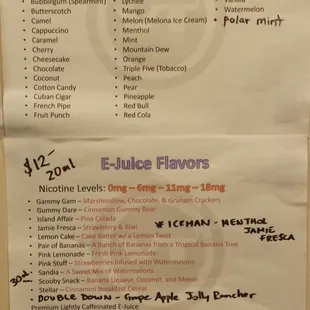 Bubblegum (Spearmint)
Butterscotch
Camel
Cappuccino
Caramel
Cherry
Cheesecake
Chocolate
Coconut
Cotton Candy
Cuban Cigar
French Pipe
Fruit Punch
Lychee
Mango
Melon (Melona Ice Cream)
Menthol
Mint
Mountain Dew
Orange
Triple Five (Tobacco)
Peach
Pear
Pineapple
Red Bull
Red Cola
Vanilla
Watermelon
polar mint
$12-
20ml
E-Juice Flavors
Nicotine Levels: 0mg – 6mg – 11mg – 18mg
Gammy Gam – Marshmallow, Chocolate, & Graham Crackers
Gummy Dare – Cinnamon Gummy Bear
Island Affair – Pina Colada
Jamie Fresca – Strawberry & Kiwi
Lemon Cake – Cake Batter w/ a Lemon Twist
Pair of Bananas – A bunch of Bananas from a Tropical Banana Tree
Pink Lemonade – Fresh Pink Lemonade
Pink Stuff – Strawberries Infused with Watermelons
Sandia – A Sweet Mix of Watermelons
Scooby Snack – Banana Liqueur, Coconut, and Melon
Stellar – Cinnamon Breakfast Cereal
* ICEMAN - MENTHOL
JAMIE
FRESCA
DOUBLE DOWN - Grape Apple Jolly Rancher
Premium Lightly Caffeinated E-Juice